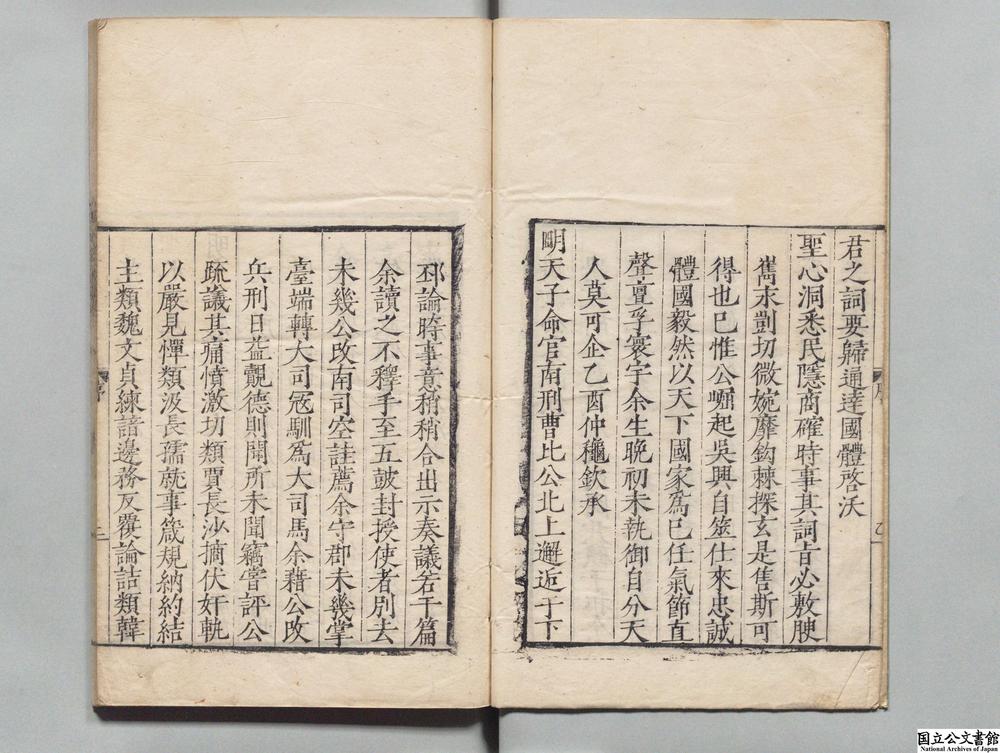 君之詞要歸通達國體啓沃
聖心洞悉民隱商確時事其詞旨必敷腴
雋永剴切微婉靡鈎棘探玄是售斯可
得也已惟公崛起吳興自筮仕來忠誠
體國毅然以天下國家爲已任氣節直
聲亶孚寰宇余生晚初未執御自分天
人莫可企乙酉仲龝欽承
明天子命官南刑曹比公北上邂逅于下
邳論時事意稍稍合出示奏議若干篇
余讀之不釋手至五鼓封授使者別去
未幾公改南司空註薦余守郡未幾掌
臺端轉大司冦馴爲大司馬余藉公攻
兵刑日益覿德則聞所未聞竊嘗評公
疏議其痛憤激切類賈長沙摘伏奸軌
以嚴見憚類汲長孺就事箴規納約結
主類魏文貞練諳邊務反覆論詰類韓
序
序
三
国立公文書館
National Archives of Japan